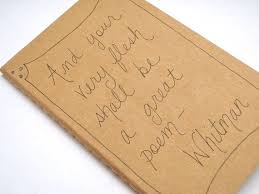 And your
very flesh
shall be
a great
poem-
Whitman